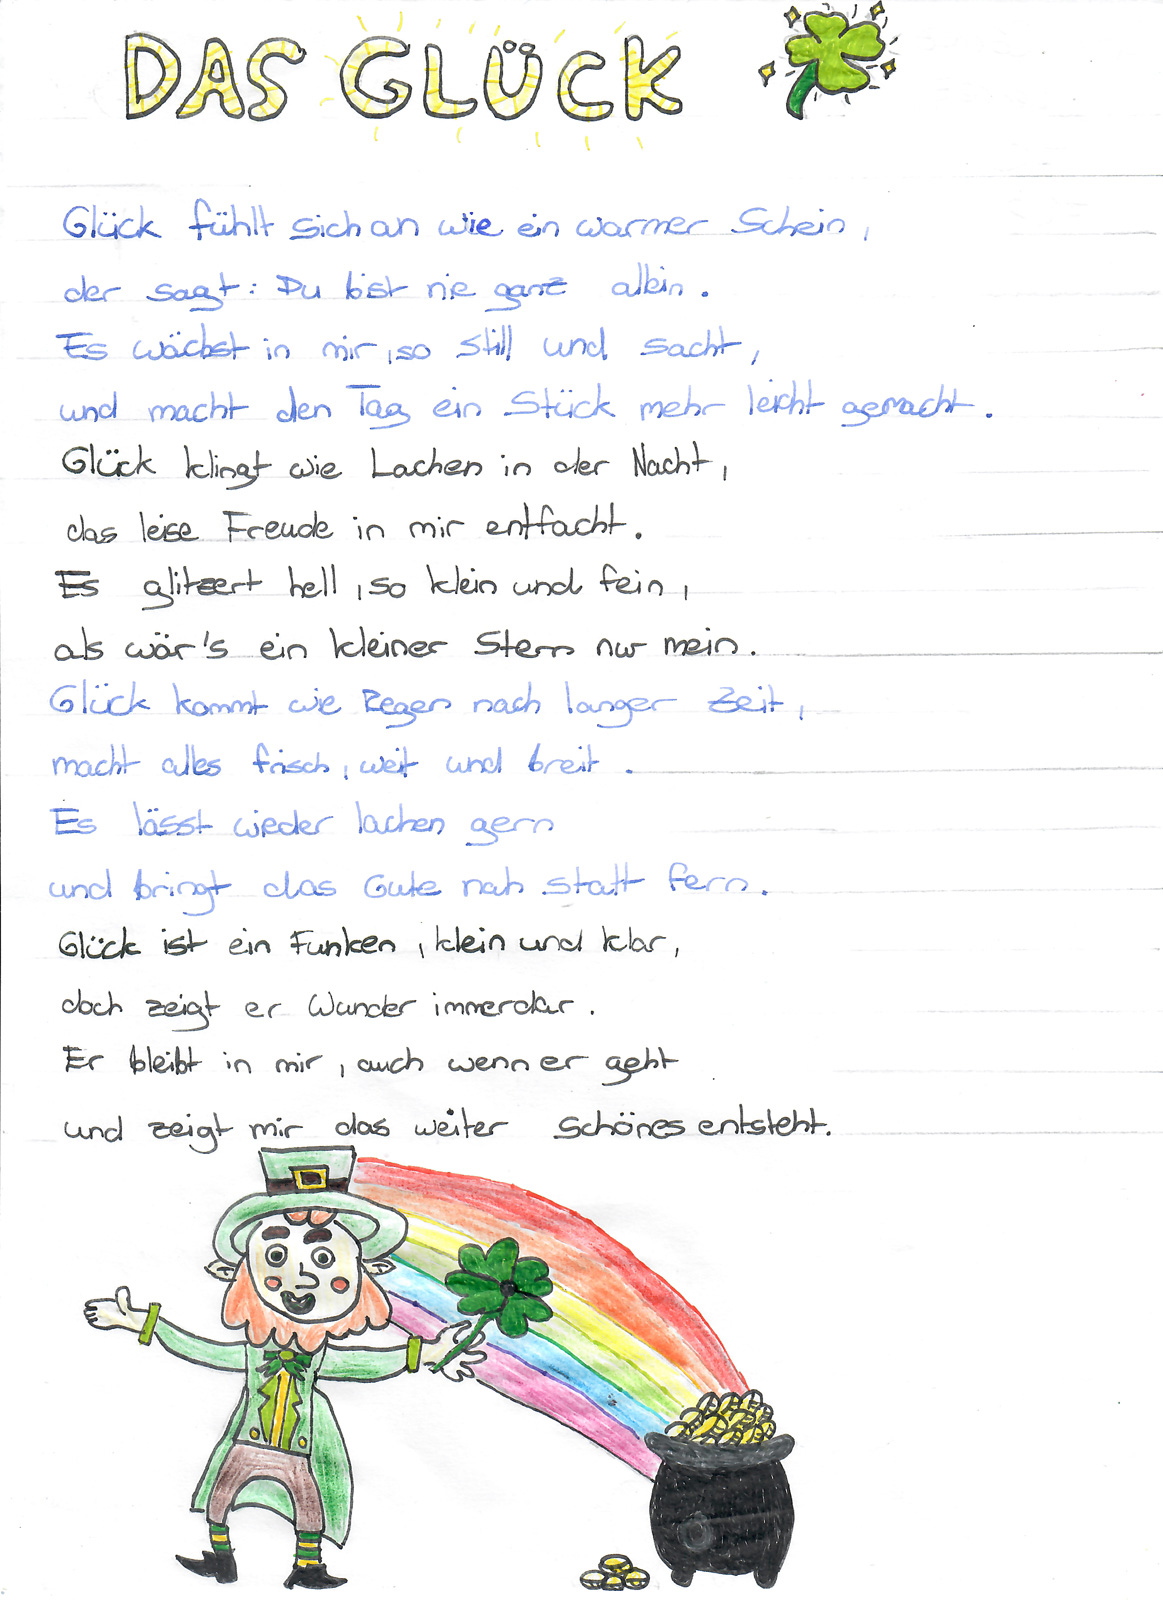 DAS GLÜCK
Glück fühlt sich an wie ein warmer Schein,
der sagt: Du bist nie ganz allein.
Es wächst in mir, so still und sacht,
und macht den Tag ein Stück mehr leicht gemacht.
Glück klingt wie Lachen in der Nacht,
das leise Freude in mir entfacht.
Es glitzert hell, so klein und fein,
als wär's ein kleiner Stern nur mein.
Glück kommt wie Regen nach langer Zeit,
macht alles frisch, weit und breit.
Es lässt wieder lachen gern
und bringt das Gute nah statt fern.
Glück ist ein Funken, klein und klar,
doch zeigt er Wunder immerdar.
Er bleibt in mir, auch wenn er geht
und zeigt mir das weiter Schönes entsteht.